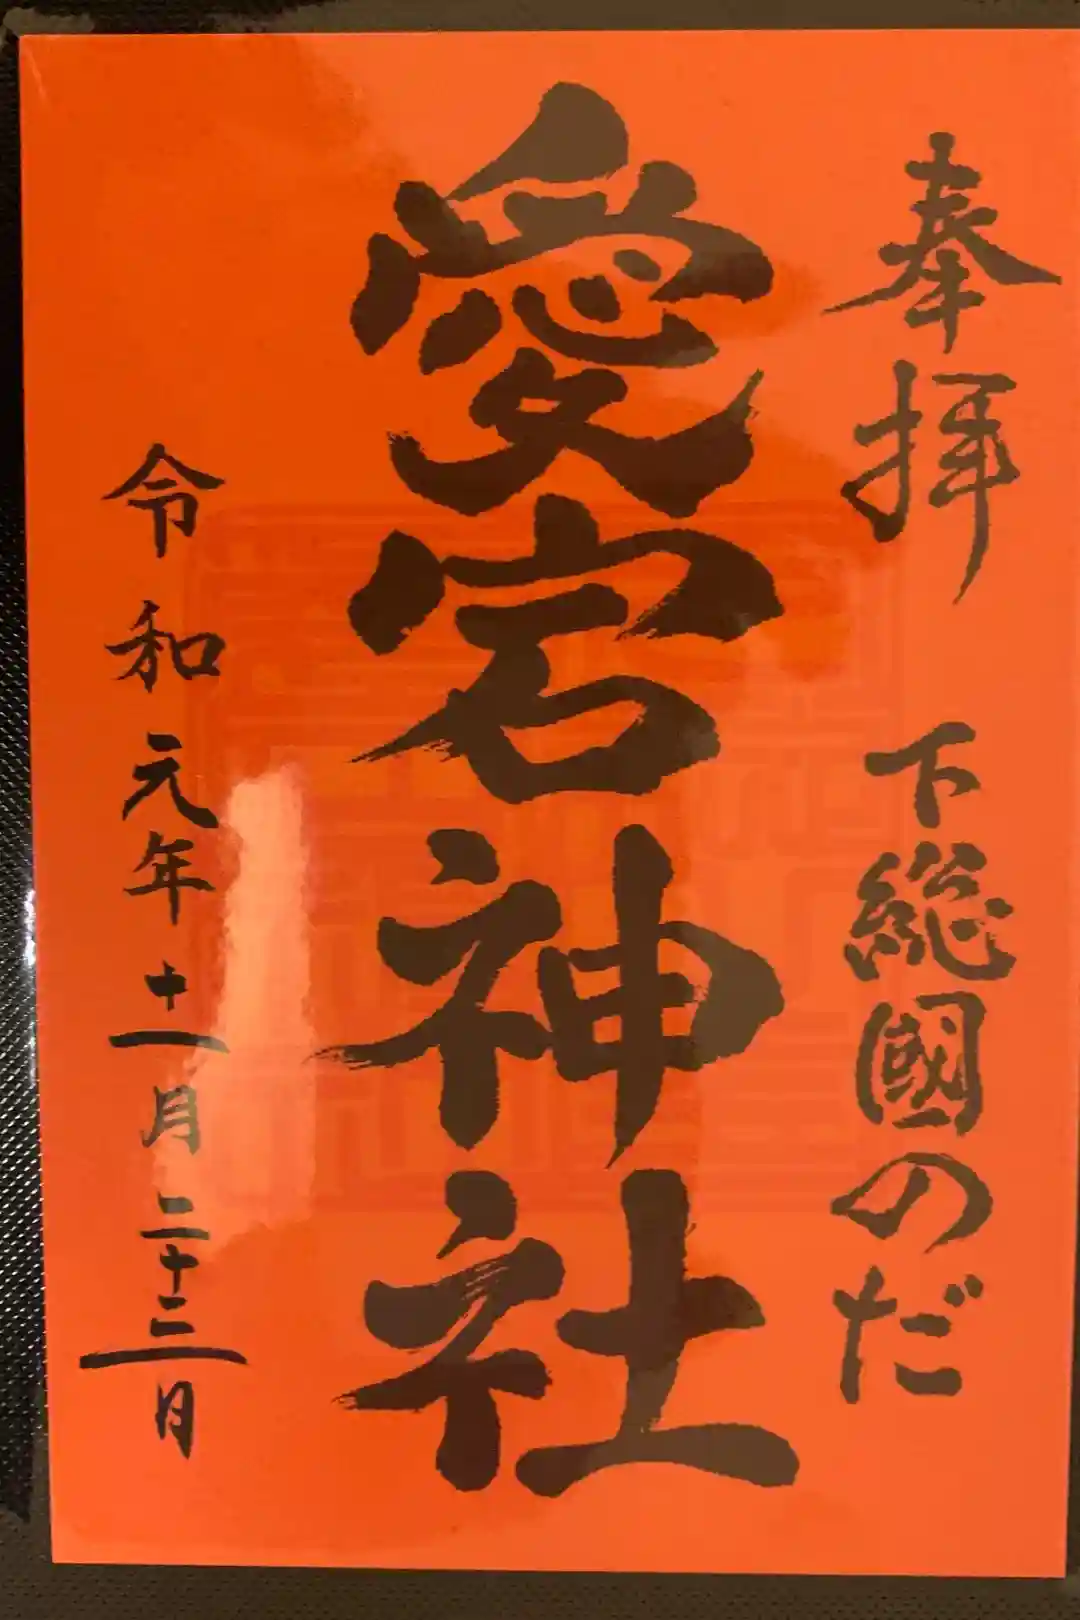 奉拝　下総國のだ
愛宕神社
令和元年十一月二十三日